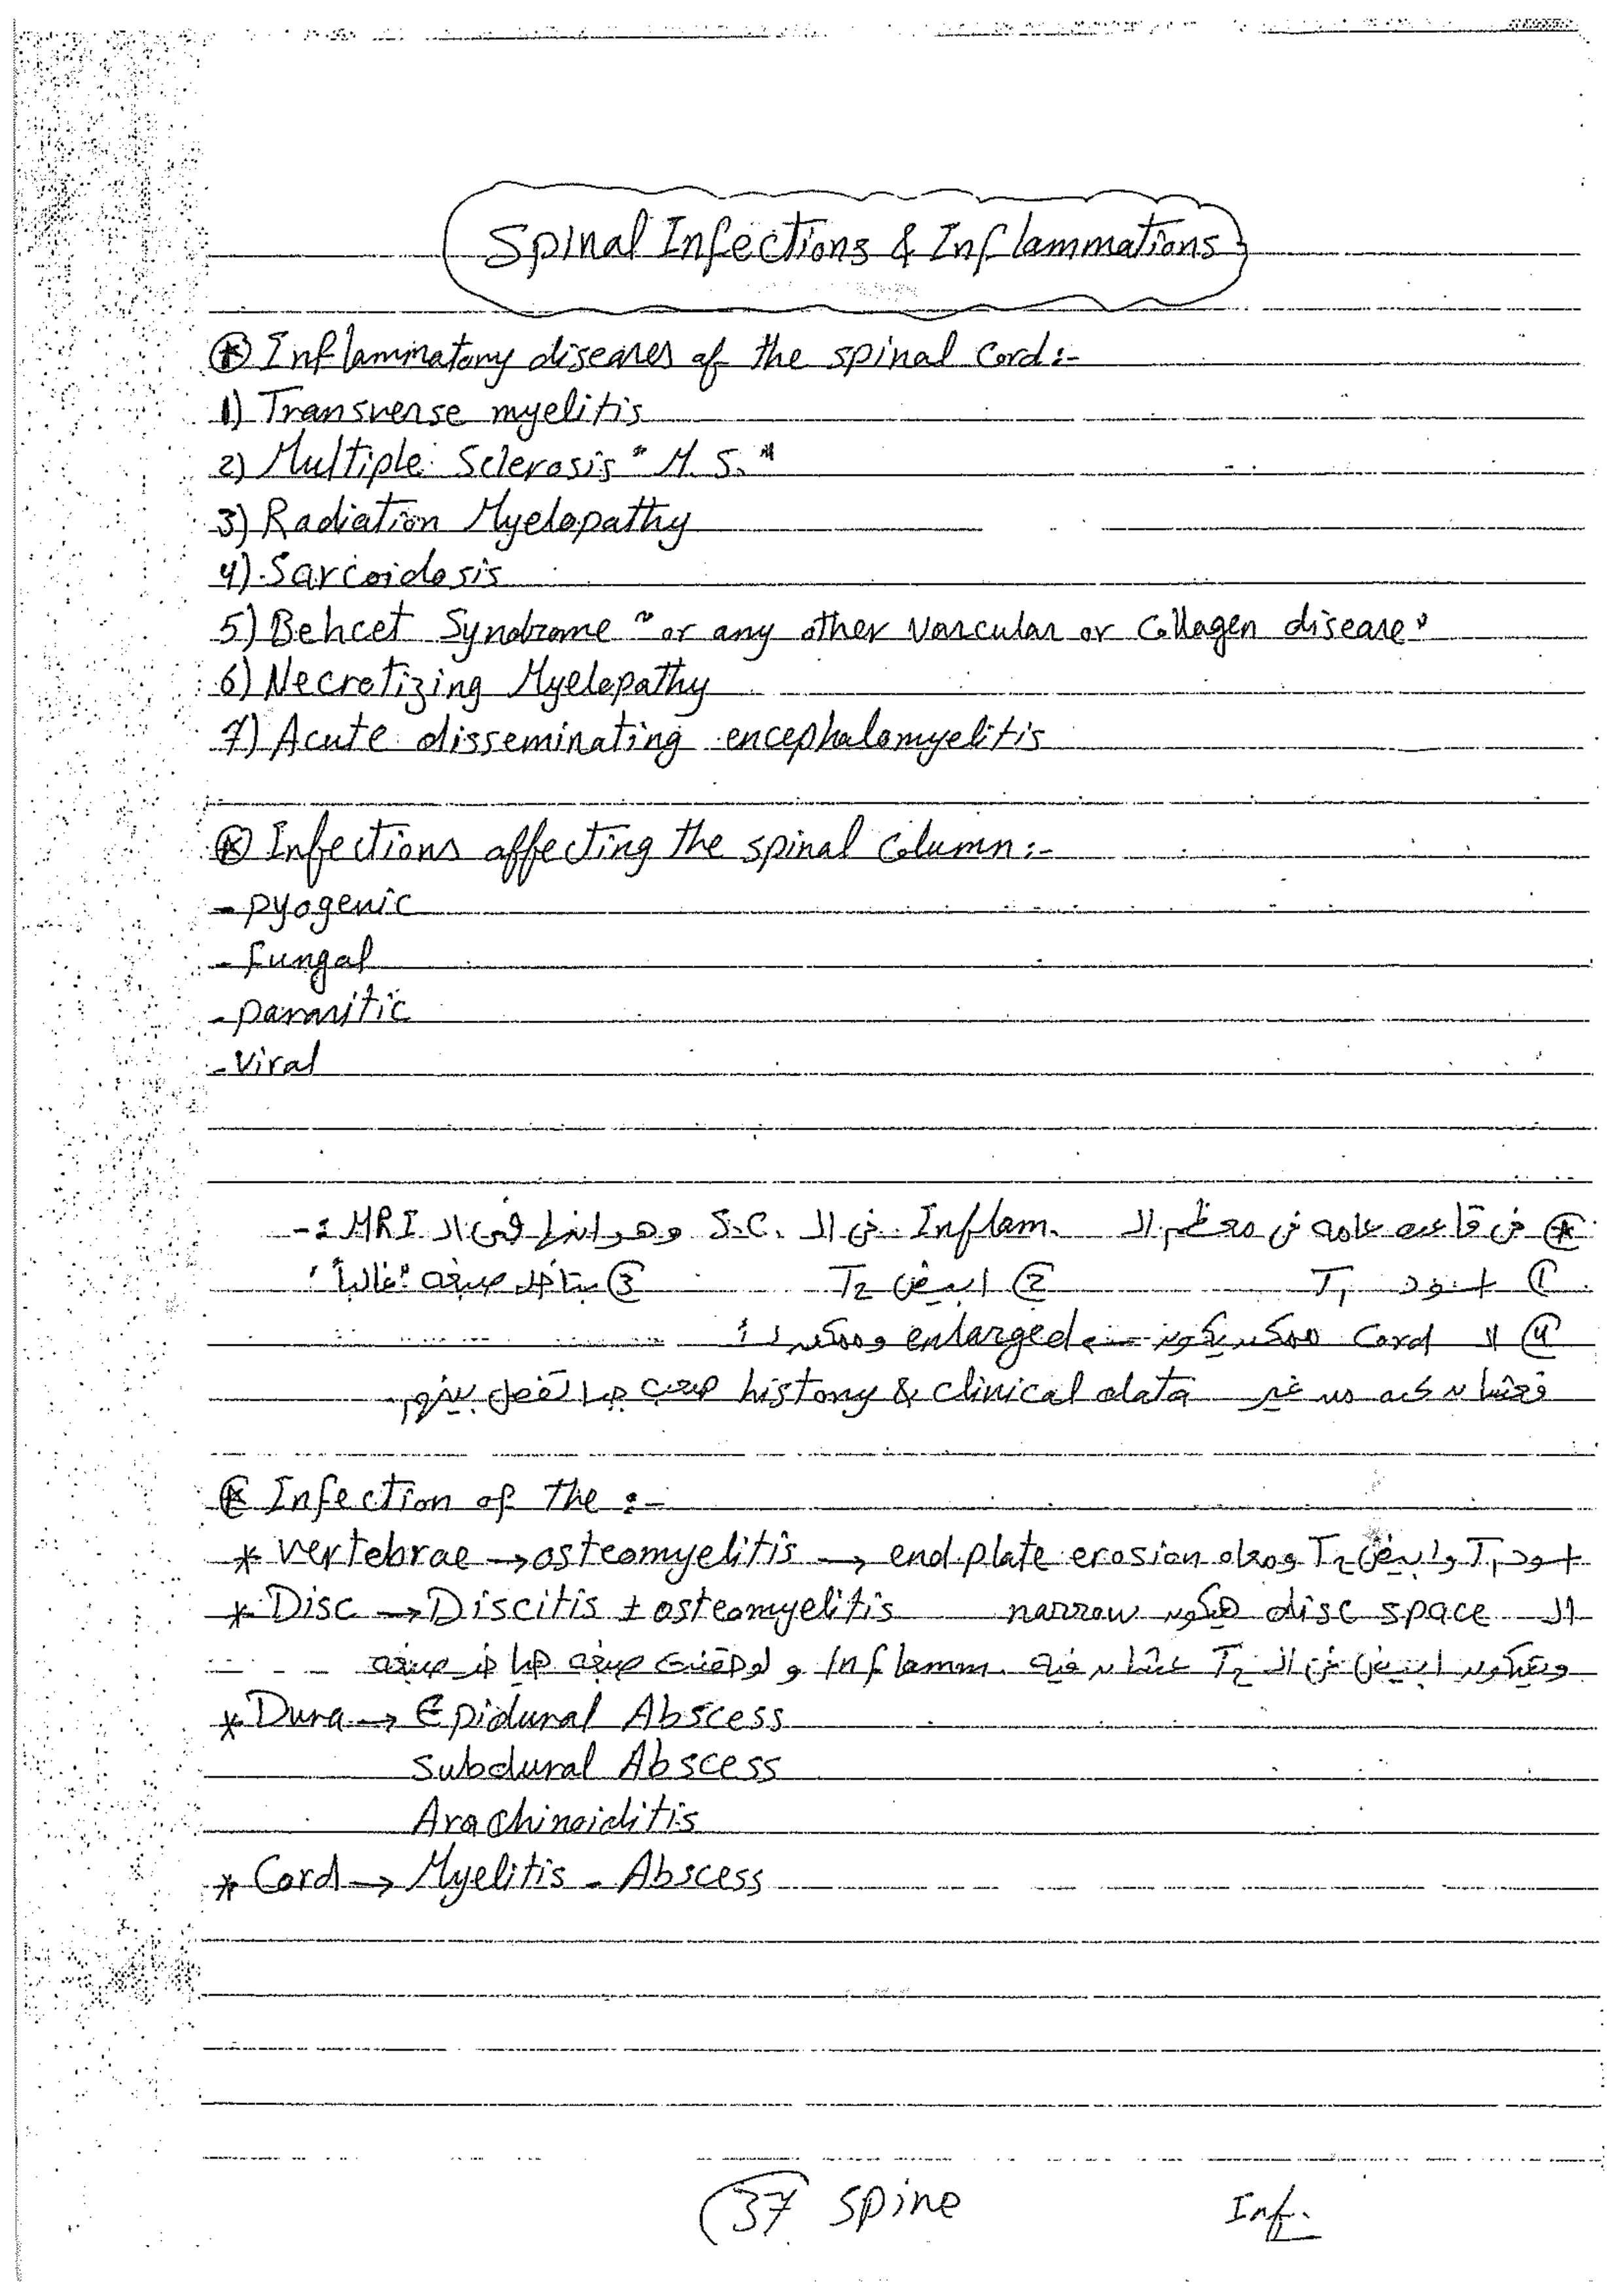 Spinal Infections & Inflammations
⊛ Inflammatory diseases of the spinal cord:-
1) Transverse myelitis
2) Multiple Sclerosis "M.S."
3) Radiation Myelopathy
4) Sarcoidosis
5) Behcet Syndrome "or any other vascular or Collagen disease"
6) Necrotizing Myelopathy
7) Acute disseminating encephalomyelitis
⊛ Infections affecting the spinal Column:-
- pyogenic
- fungal
- parasitic
- Viral
⊛ فى قاعده عامه فى معظم الـ Inflam. فى الـ S.C. وهو انها فى الـ MRI :-
① اسود T1 ② ابيض T2 ③ بتاخد صبغه "غالباً"
④ الـ Cord ممكن يكون enlarged وممكن لأ
فعشان كده من غير history & clinical data صعب جداً تفصل بينهم
⊛ Infection of the :-
* vertebrae → osteomyelitis → end plate erosion ومعاه اسود T1 وابيض T2
* Disc → Discitis ± osteomyelitis الـ disc space هيكون narrow
وهيكون ابيض فى الـ T2 عشان فيه Inflamm. و لو حقنت صبغه هياخد صبغه
* Dura → Epidural Abscess
Subdural Abscess
Arachinoiditis
* Cord → Myelitis - Abscess
37 spine Inf.